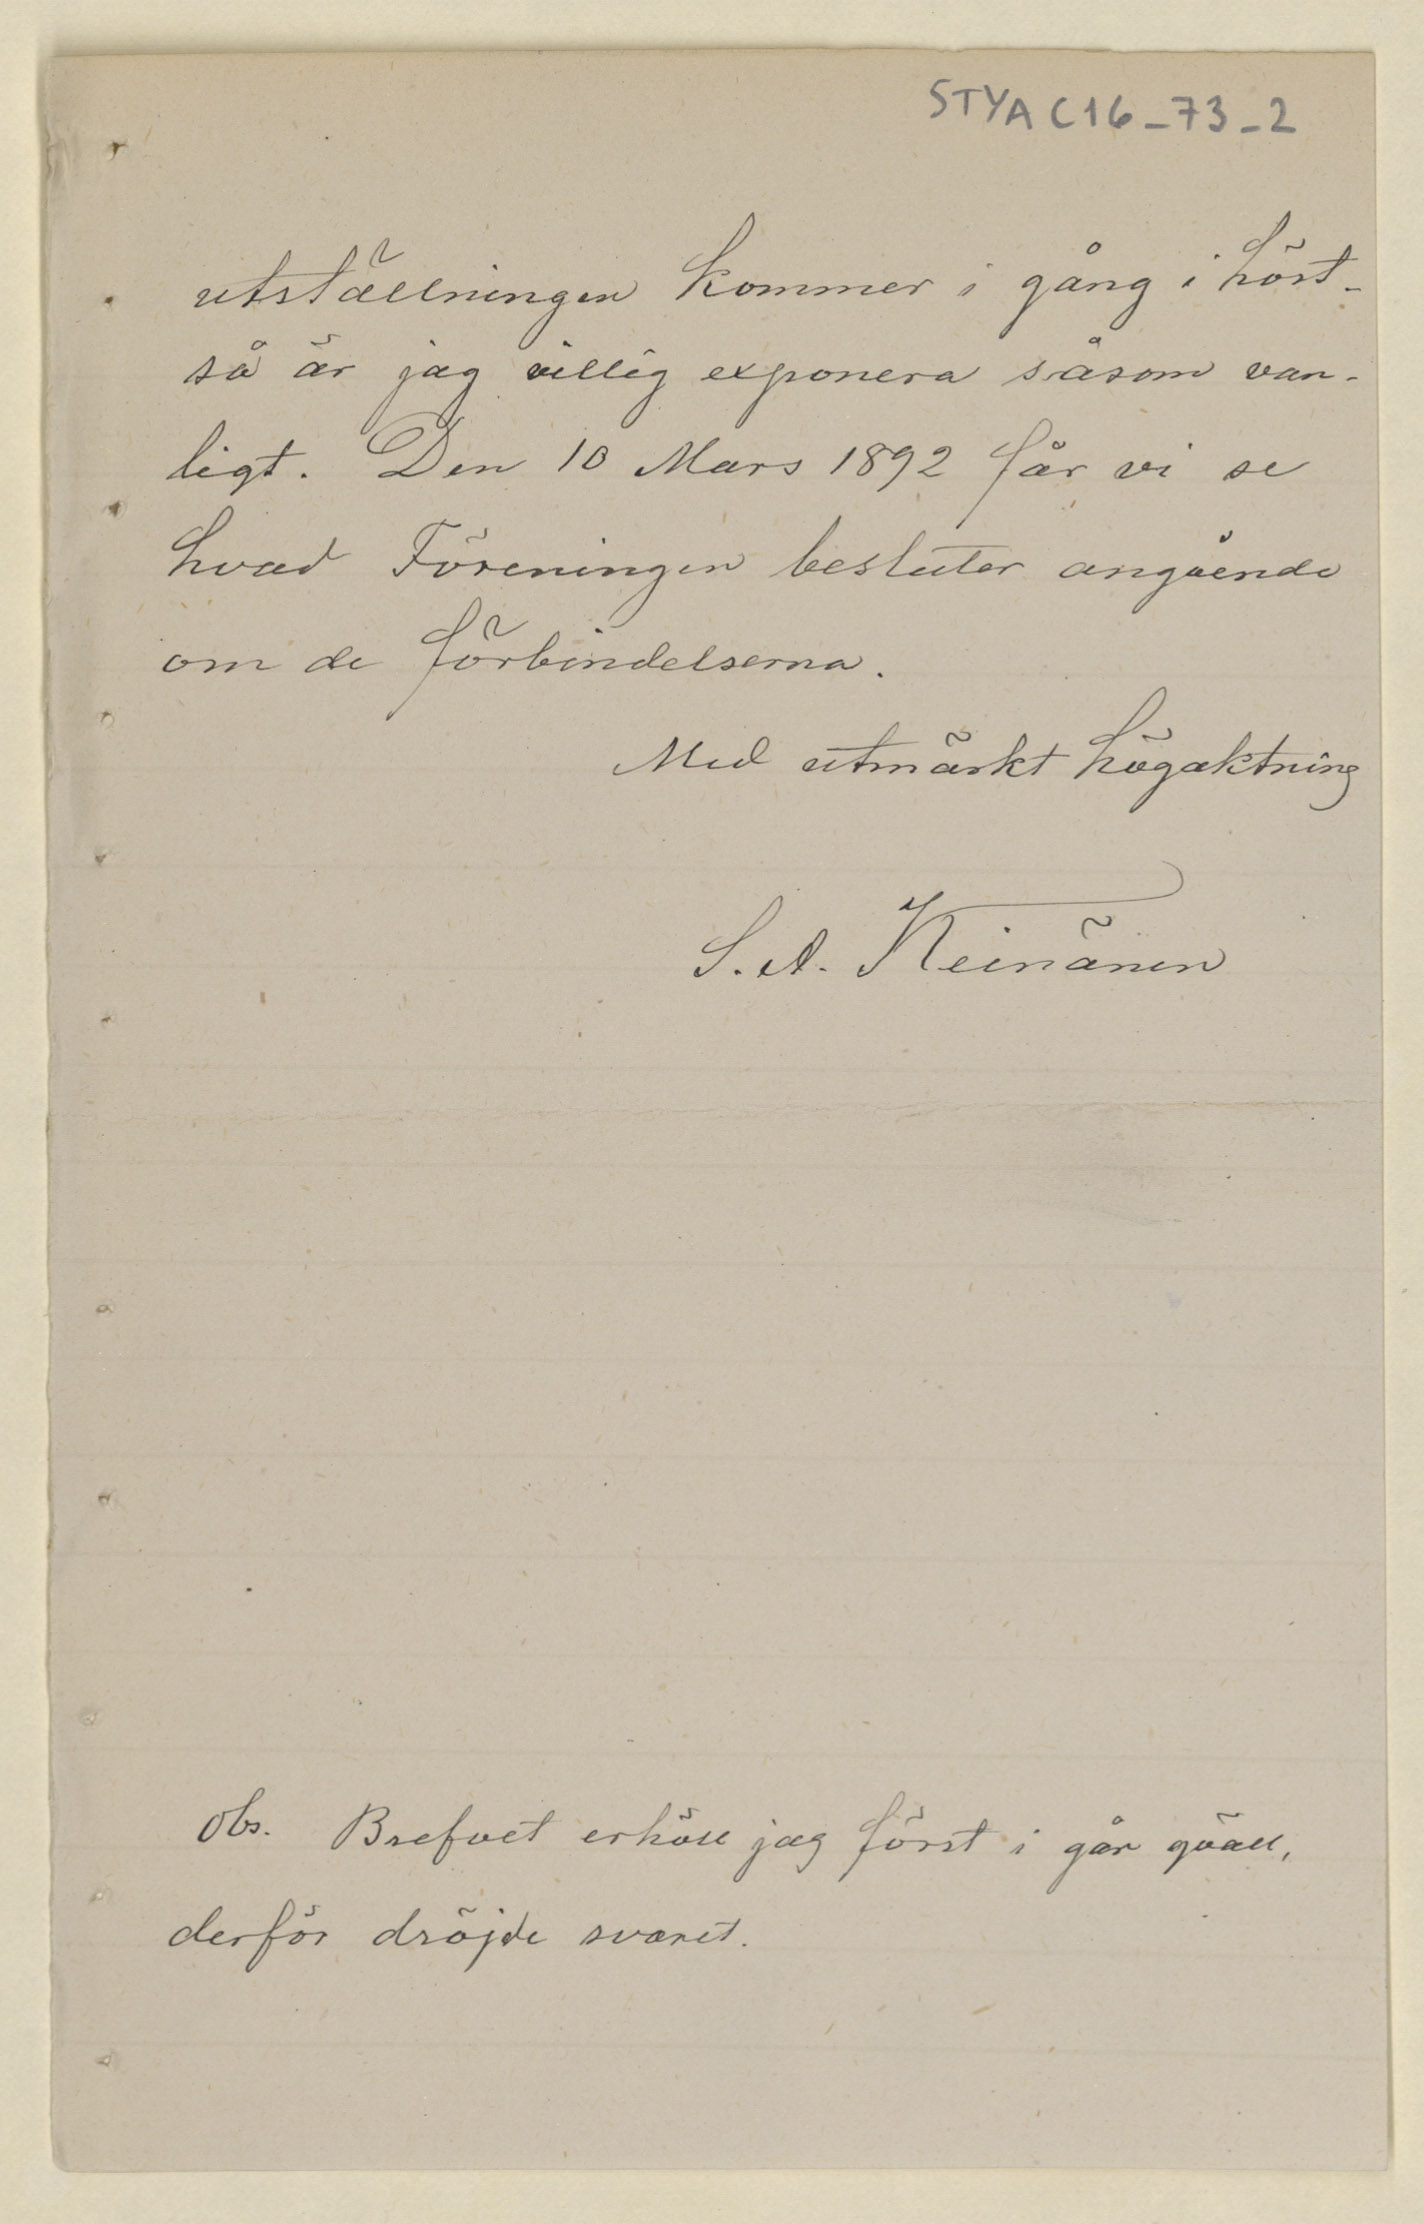 STYA C16_73_2
utställningen kommer i gång i höst -
så är jag villig exponera såsom van-
ligt. Den 10 Mars 1892 får vi se
hvad Föreningen besluter angående
om de förbindelserna.
Med utmärkt högaktning
S. A. Keinänen
Obs. Brefvet erhöll jag först i går qväll,
derför dröjde svaret.